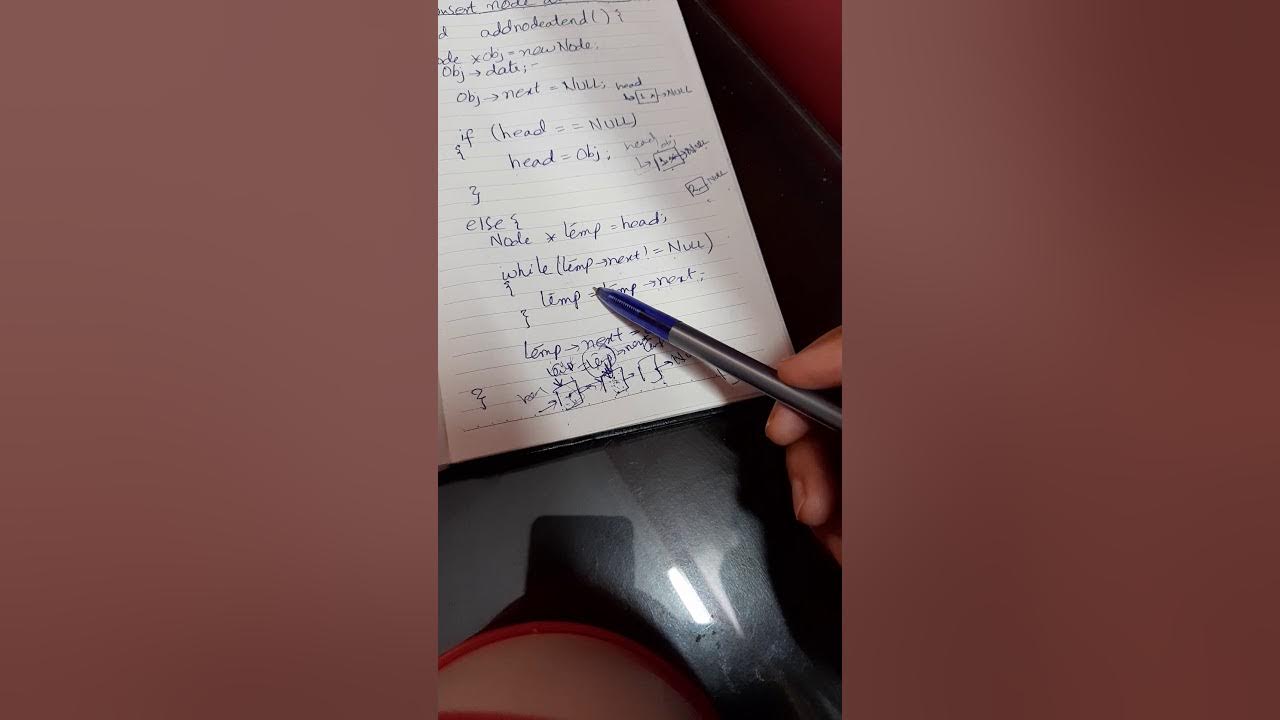 insert node
addnodeatend() {
Node * obj = new Node;
Obj → date;
Obj → next = NULL; head
1 x → NULL
if (head == NULL)
{ head = Obj; head obj
→ NULL
}
NULL
else {
Node * temp = head;
while (temp → next != NULL)
{ temp = temp → next;
}
temp → next =
temp = temp → next
}